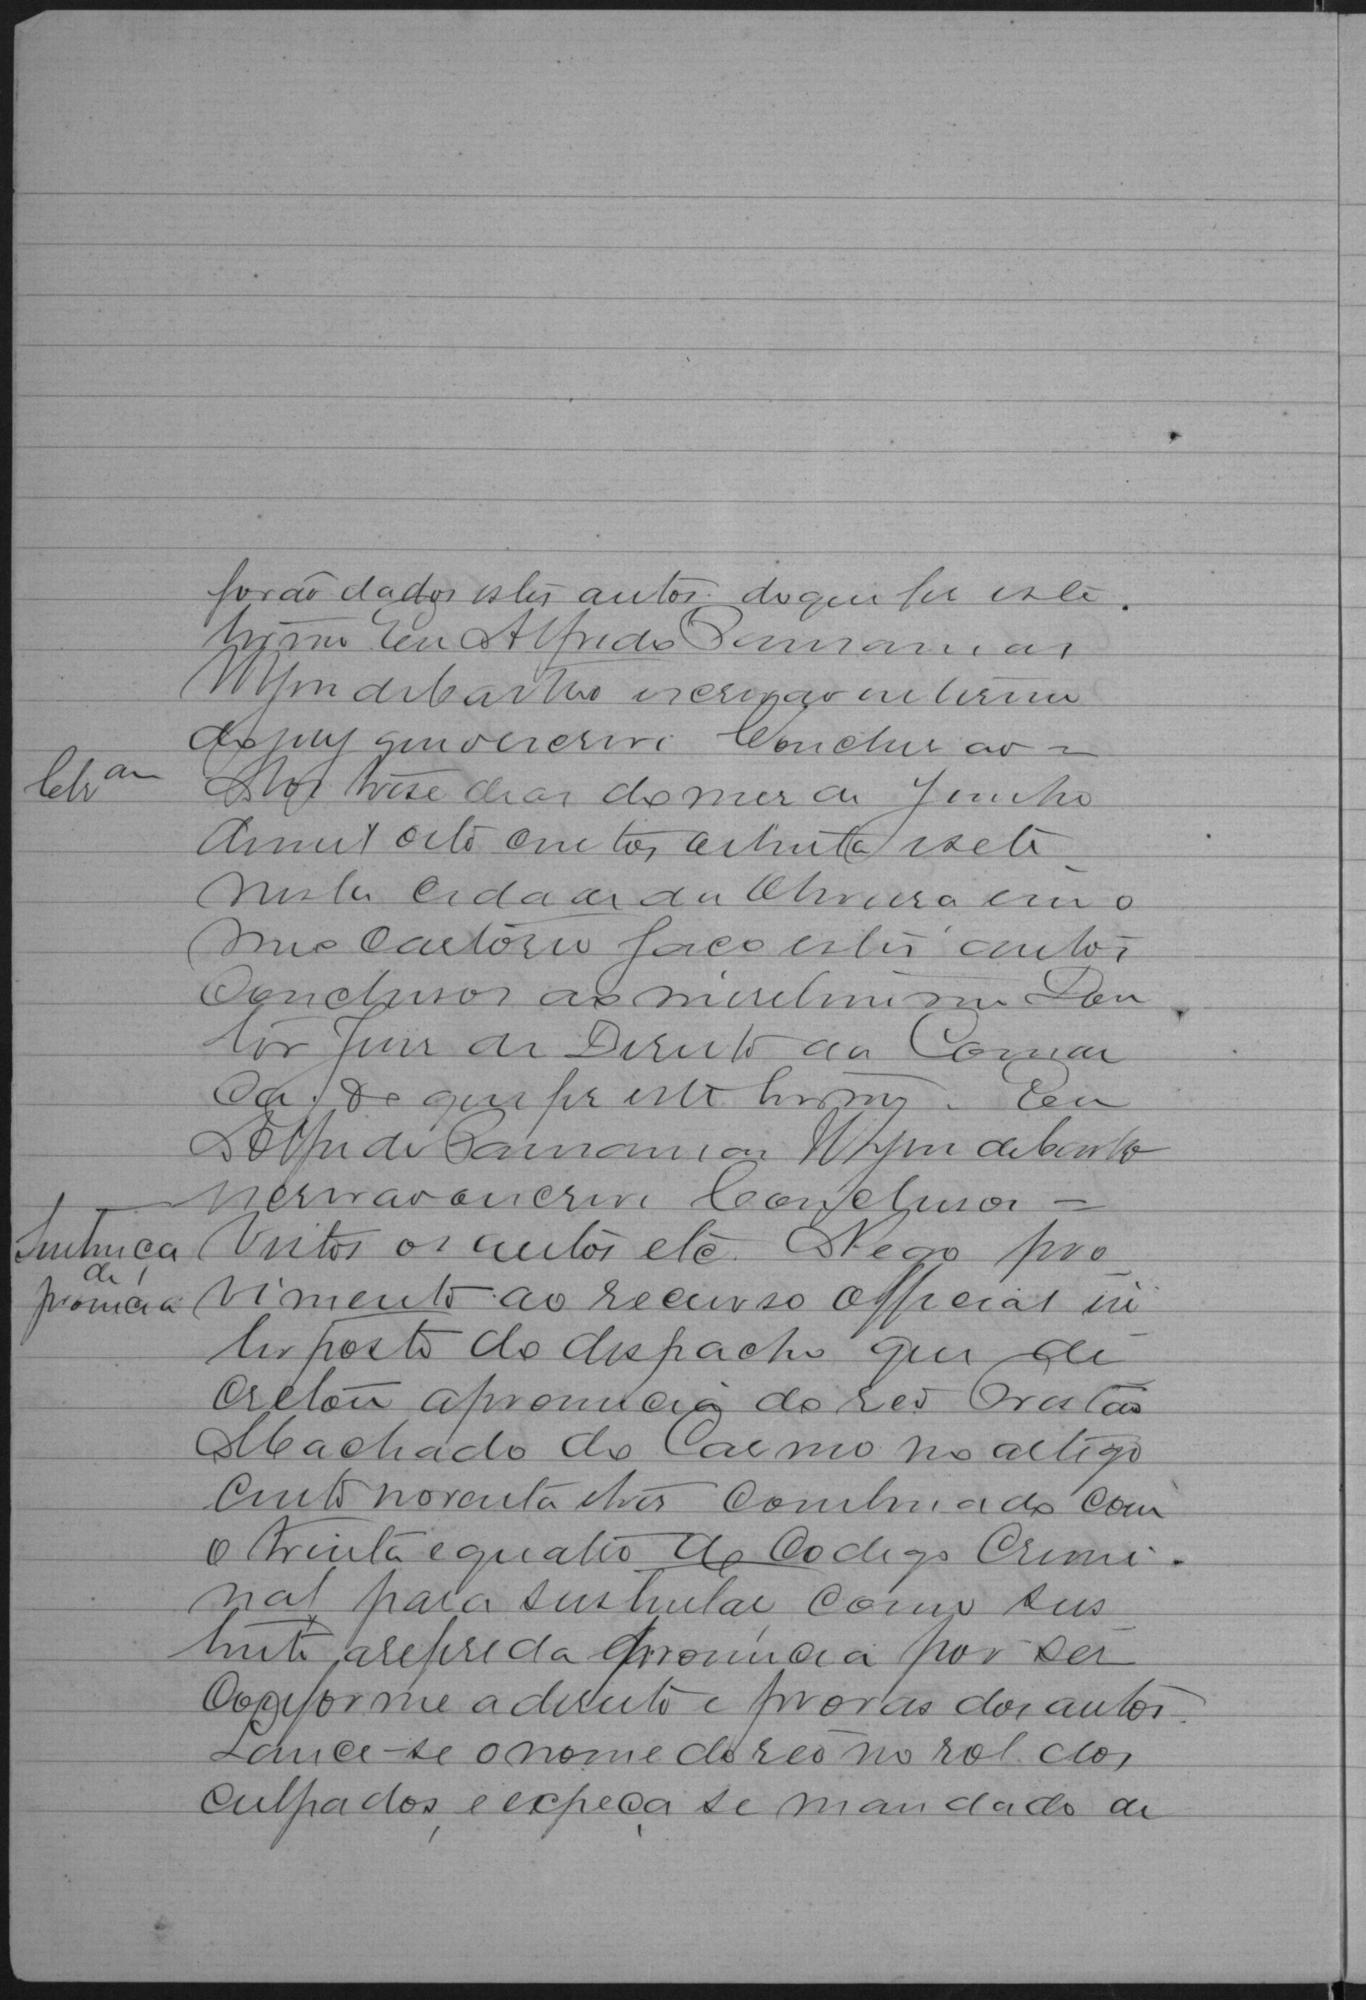 forão dados estes autos do que fis este
termo Eu Alfredo Parranhas
de Castro escrivão interino
do jury que o escrevi Conclusão =
Clsam Aos treze dias do mes de Junho
de mil oito centos oitenta e sete
nesta Cidade da Oliveira em o
meo Cartorio faço estes autos
Conclusos ao meretissimo Dou
tor Juis de Direito da Comar
ca. Do que fis este termo. Eu
Alfredo de Castro
escrivão o escrevi Conclusos =
Sentença Vistos os autos etc. Nego pro
de pronuncia vimento ao recurso official in
terposto do despacho que de
cretou a pronuncia do réo
Machado do Carmo no artigo
cento noventa e tres combinado com
o trinta e quatro do Codigo Crimi
nal para sustentar como sus
tento a referida pronuncia por ser
conforme a direito e provas dos autos.
Lance-se o nome do réo no rol dos
culpados, e expeça se mandado de